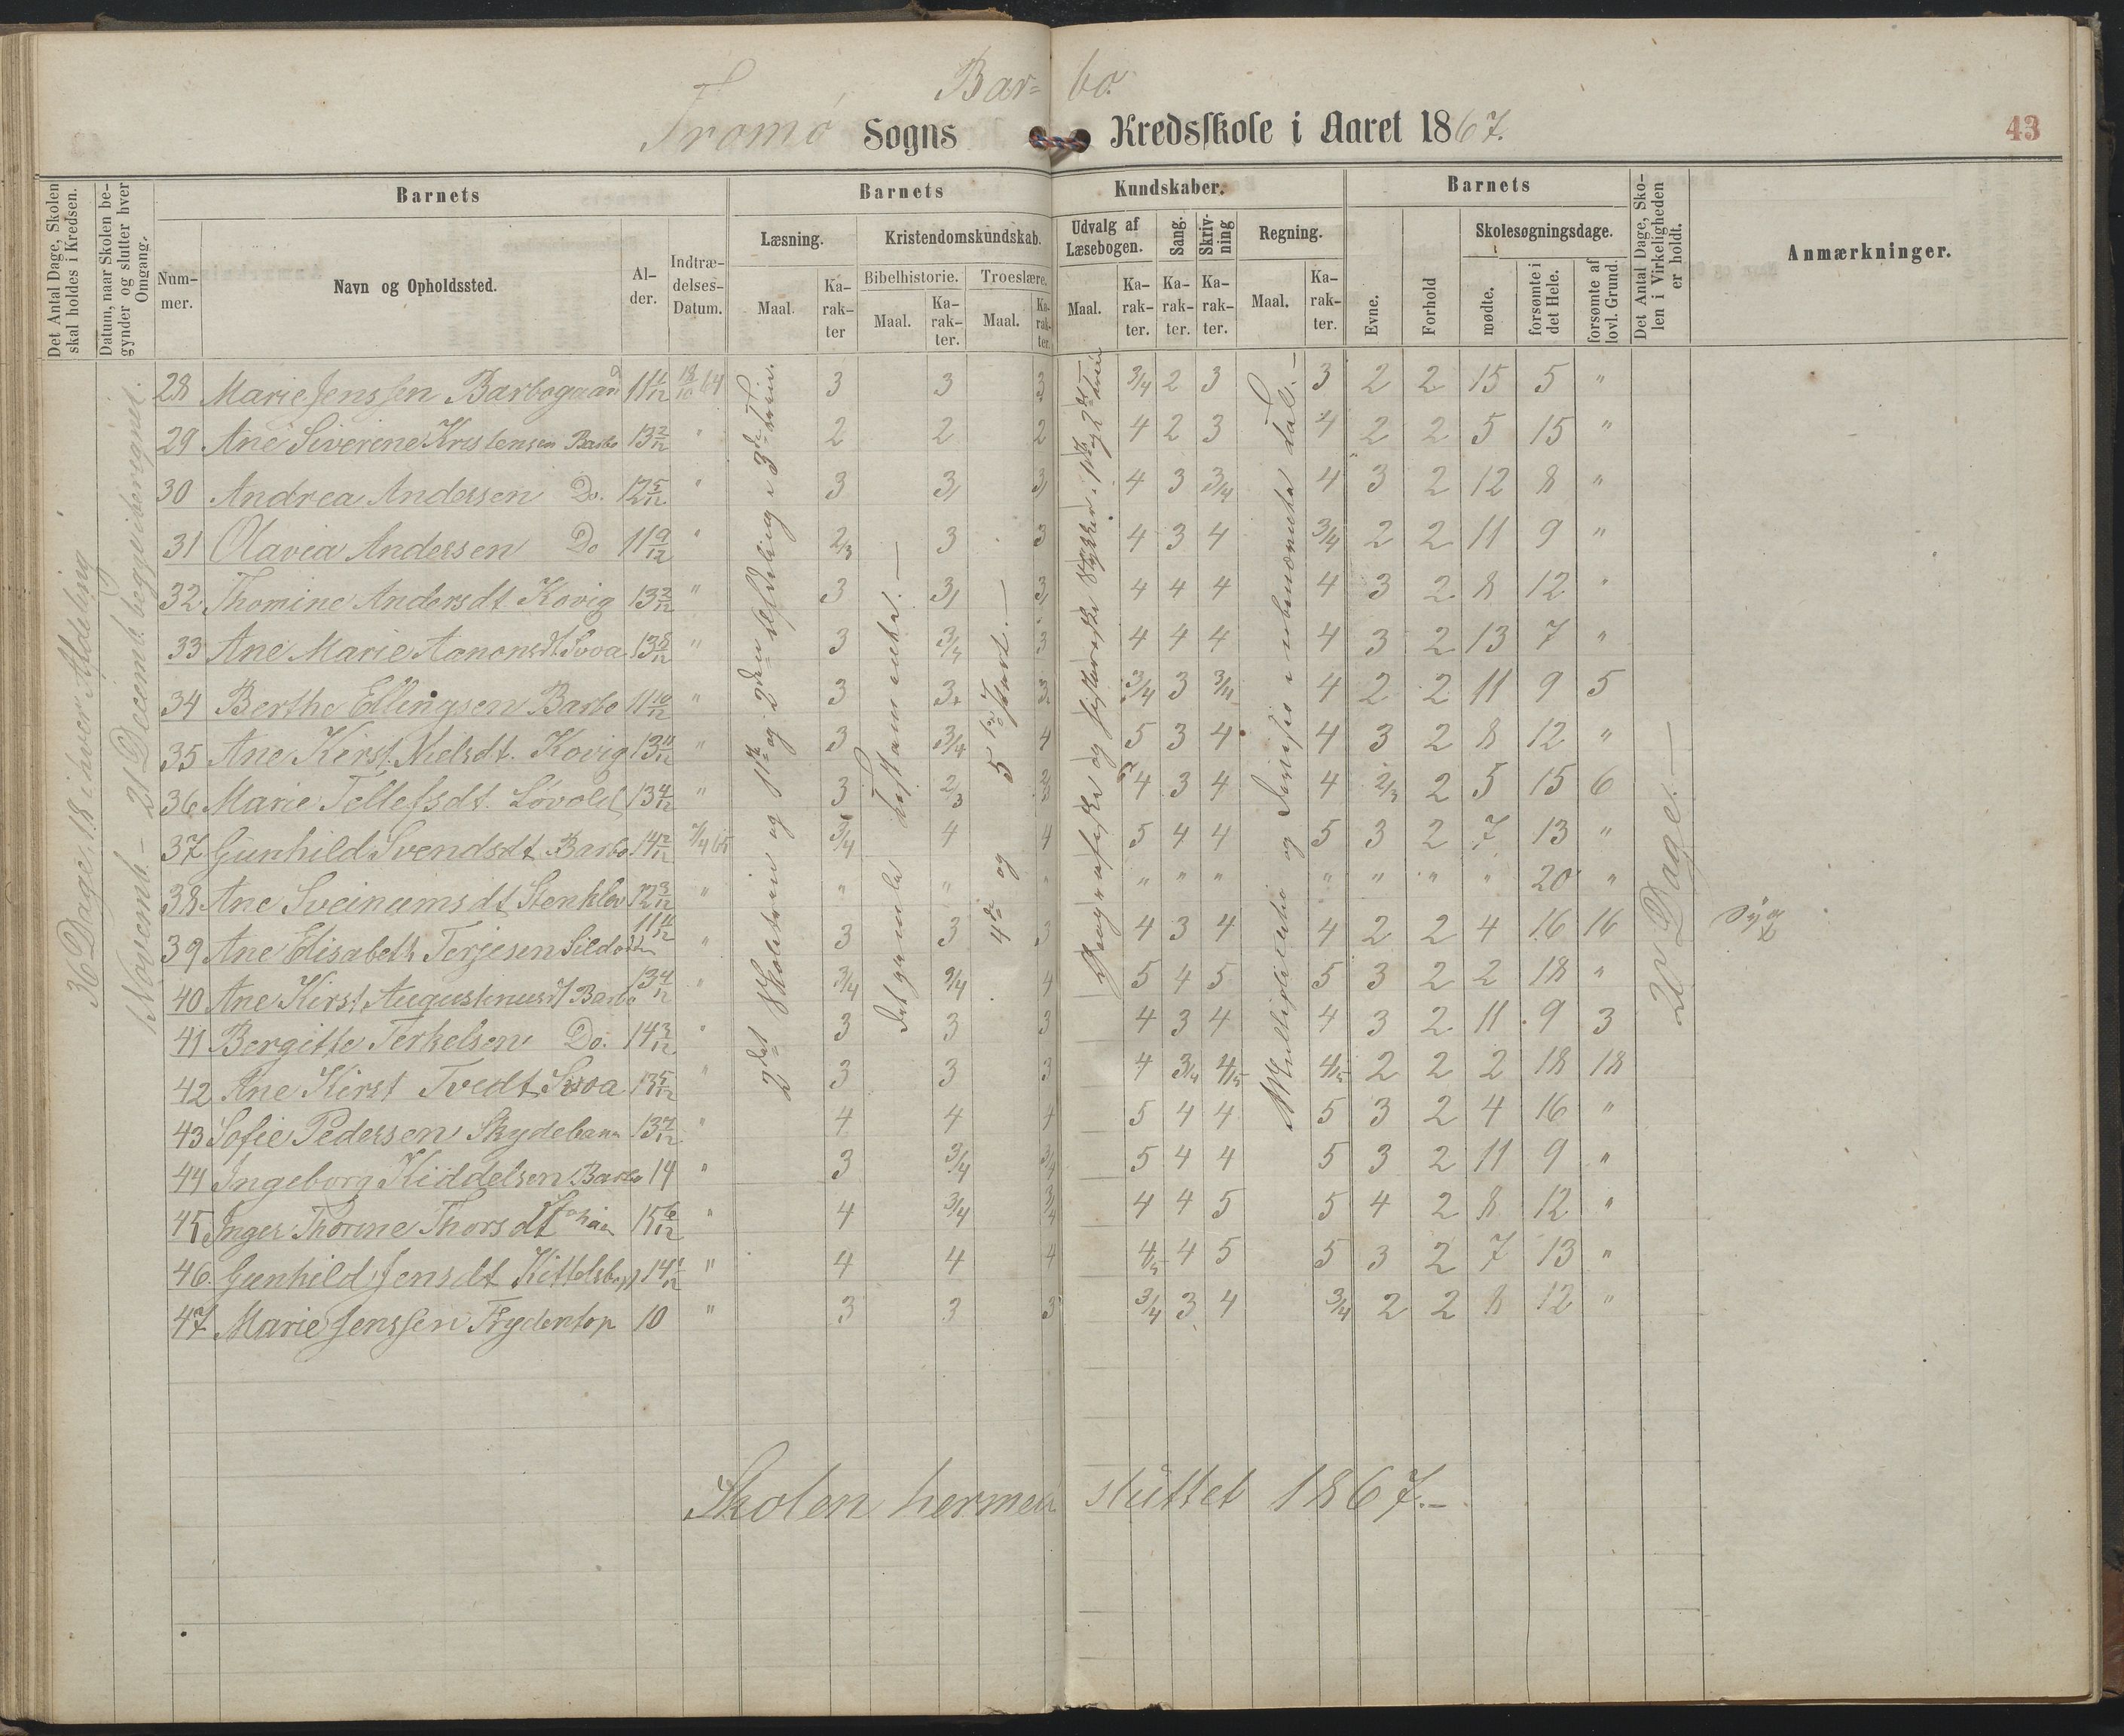 Bar= bo.
Tromø Sogns Kredsskole i Aaret 1867.
43
Det Antal Dage, Skolen skal holdes i Kredsen.
Datum, naar Skolen begynder og slutter hver Omgang.
Barnets
Nummer.
Navn og Opholdssted.
Alder.
Indtrædelses-Datum.
Barnets Kundskaber.
Læsning.
Maal.
Karakter
Kristendomskundskab.
Bibelhistorie.
Maal.
Karakter.
Troeslære.
Maal.
Karakter.
Udvalg af Læsebogen.
Maal.
Karakter.
Sang.
Karakter.
Skrivning
Karakter.
Regning.
Maal.
Karakter.
Barnets
Evne.
Forhold
Skolesøgningsdage.
mødte.
forsømte i det Hele.
forsømte af lovl. Grund.
Det Antal Dage, Skolen i Virkeligheden er holdt.
Anmærkninger.
36 Dage, 18 i hver Afdeling
1 Novemb. – 21 Decemb. begge iberegnet.
2det Skoletrin og 1ste og 2den Afdeling i 3die Trin.
det gamle Testamente.—
4de og 5te Part.—
Geografiske og historiske Stykker i 1ste og 2det Trin
Multiplication og Division i ubenævnte Tal.—
20 Dage.—
28 Marie Jenssen Barbogaard 11 4/12 18/10 64 3 3 3 3/4 2 3 3 2 2 15 5 "
29 Ane Siverine Kristensen Barbo 13 2/12 " 2 2 2 4 2 3 4 2 2 5 15 "
30 Andrea Andersen Do. 12 5/12 " 3 3 3 4 3 3/4 4 3 2 12 8 "
31 Olavia Andersen Do 11 9/12 " 2/3 3 3 4 3 4 3/4 2 2 11 9 "
32 Thomine Andersdt. Kovig 13 2/12 " 3 3 3 4 4 4 4 3 2 8 12 "
33 Ane Marie Aanonsdt Svoa 13 8/12 " 3 3/4 3 4 4 4 4 3 2 13 7 "
34 Berthe Ellingsen Barbo 11 10/12 " 3 3 3 3/4 3 3/4 4 2 2 11 9 5
35 Ane Kirst. Nielsdt. Kovig 13 11/12 " 3 3/4 4 5 3 4 4 3 2 8 12 "
36 Marie Tellefsdt. Løvold 13 4/12 " 3 2/3 2/3 4 3 4 4 2/3 2 5 15 6
37 Gunhild Svendsdt Barbo 14 2/12 3/4 65 3/4 4 4 5 4 4 5 3 2 7 13 "
38 Ane Sveinumsdt Stenklev 12 3/12 " " " " " " " " " " " 20 "
39 Ane Elisabeth Terjesen 11 11/12 " 3 3 3 4 3 4 4 2 2 4 16 16 Syg
40 Ane Kirst. Augustinusdt Barbo 13 4/12 " 3/4 3/4 4 5 4 5 5 3 2 2 18 "
41 Bergitte Terkelsen Do. 14 3/12 " 3 3 3 4 3 4 4 3 2 11 9 3
42 Ane Kirst Tvedt Svoa 13 5/12 " 3 3 3 4 3/4 4/5 4/5 2 2 2 18 18
43 Sofie Pedersen Skydebane 13 7/12 " 4 4 4 5 4 4 5 3 2 4 16 "
44 Ingeborg Kiddelsen Barbo 14 " 3 3/4 3/4 5 4 4 5 3 2 11 9 "
45 Inger Thomine Thorsdt 15 6/12 " 4 3/4 3/4 4 4 5 5 4 2 8 12 "
46. Gunhild Jensdt Kittelsb. 14 " 4 4 4 4/5 4 5 5 3 2 7 13 "
47 Marie Jenssen Frydentop 10 " 3 3 3 3/4 3 4 3/4 2 2 8 12 "
Skolen hermed sluttet 1867.—